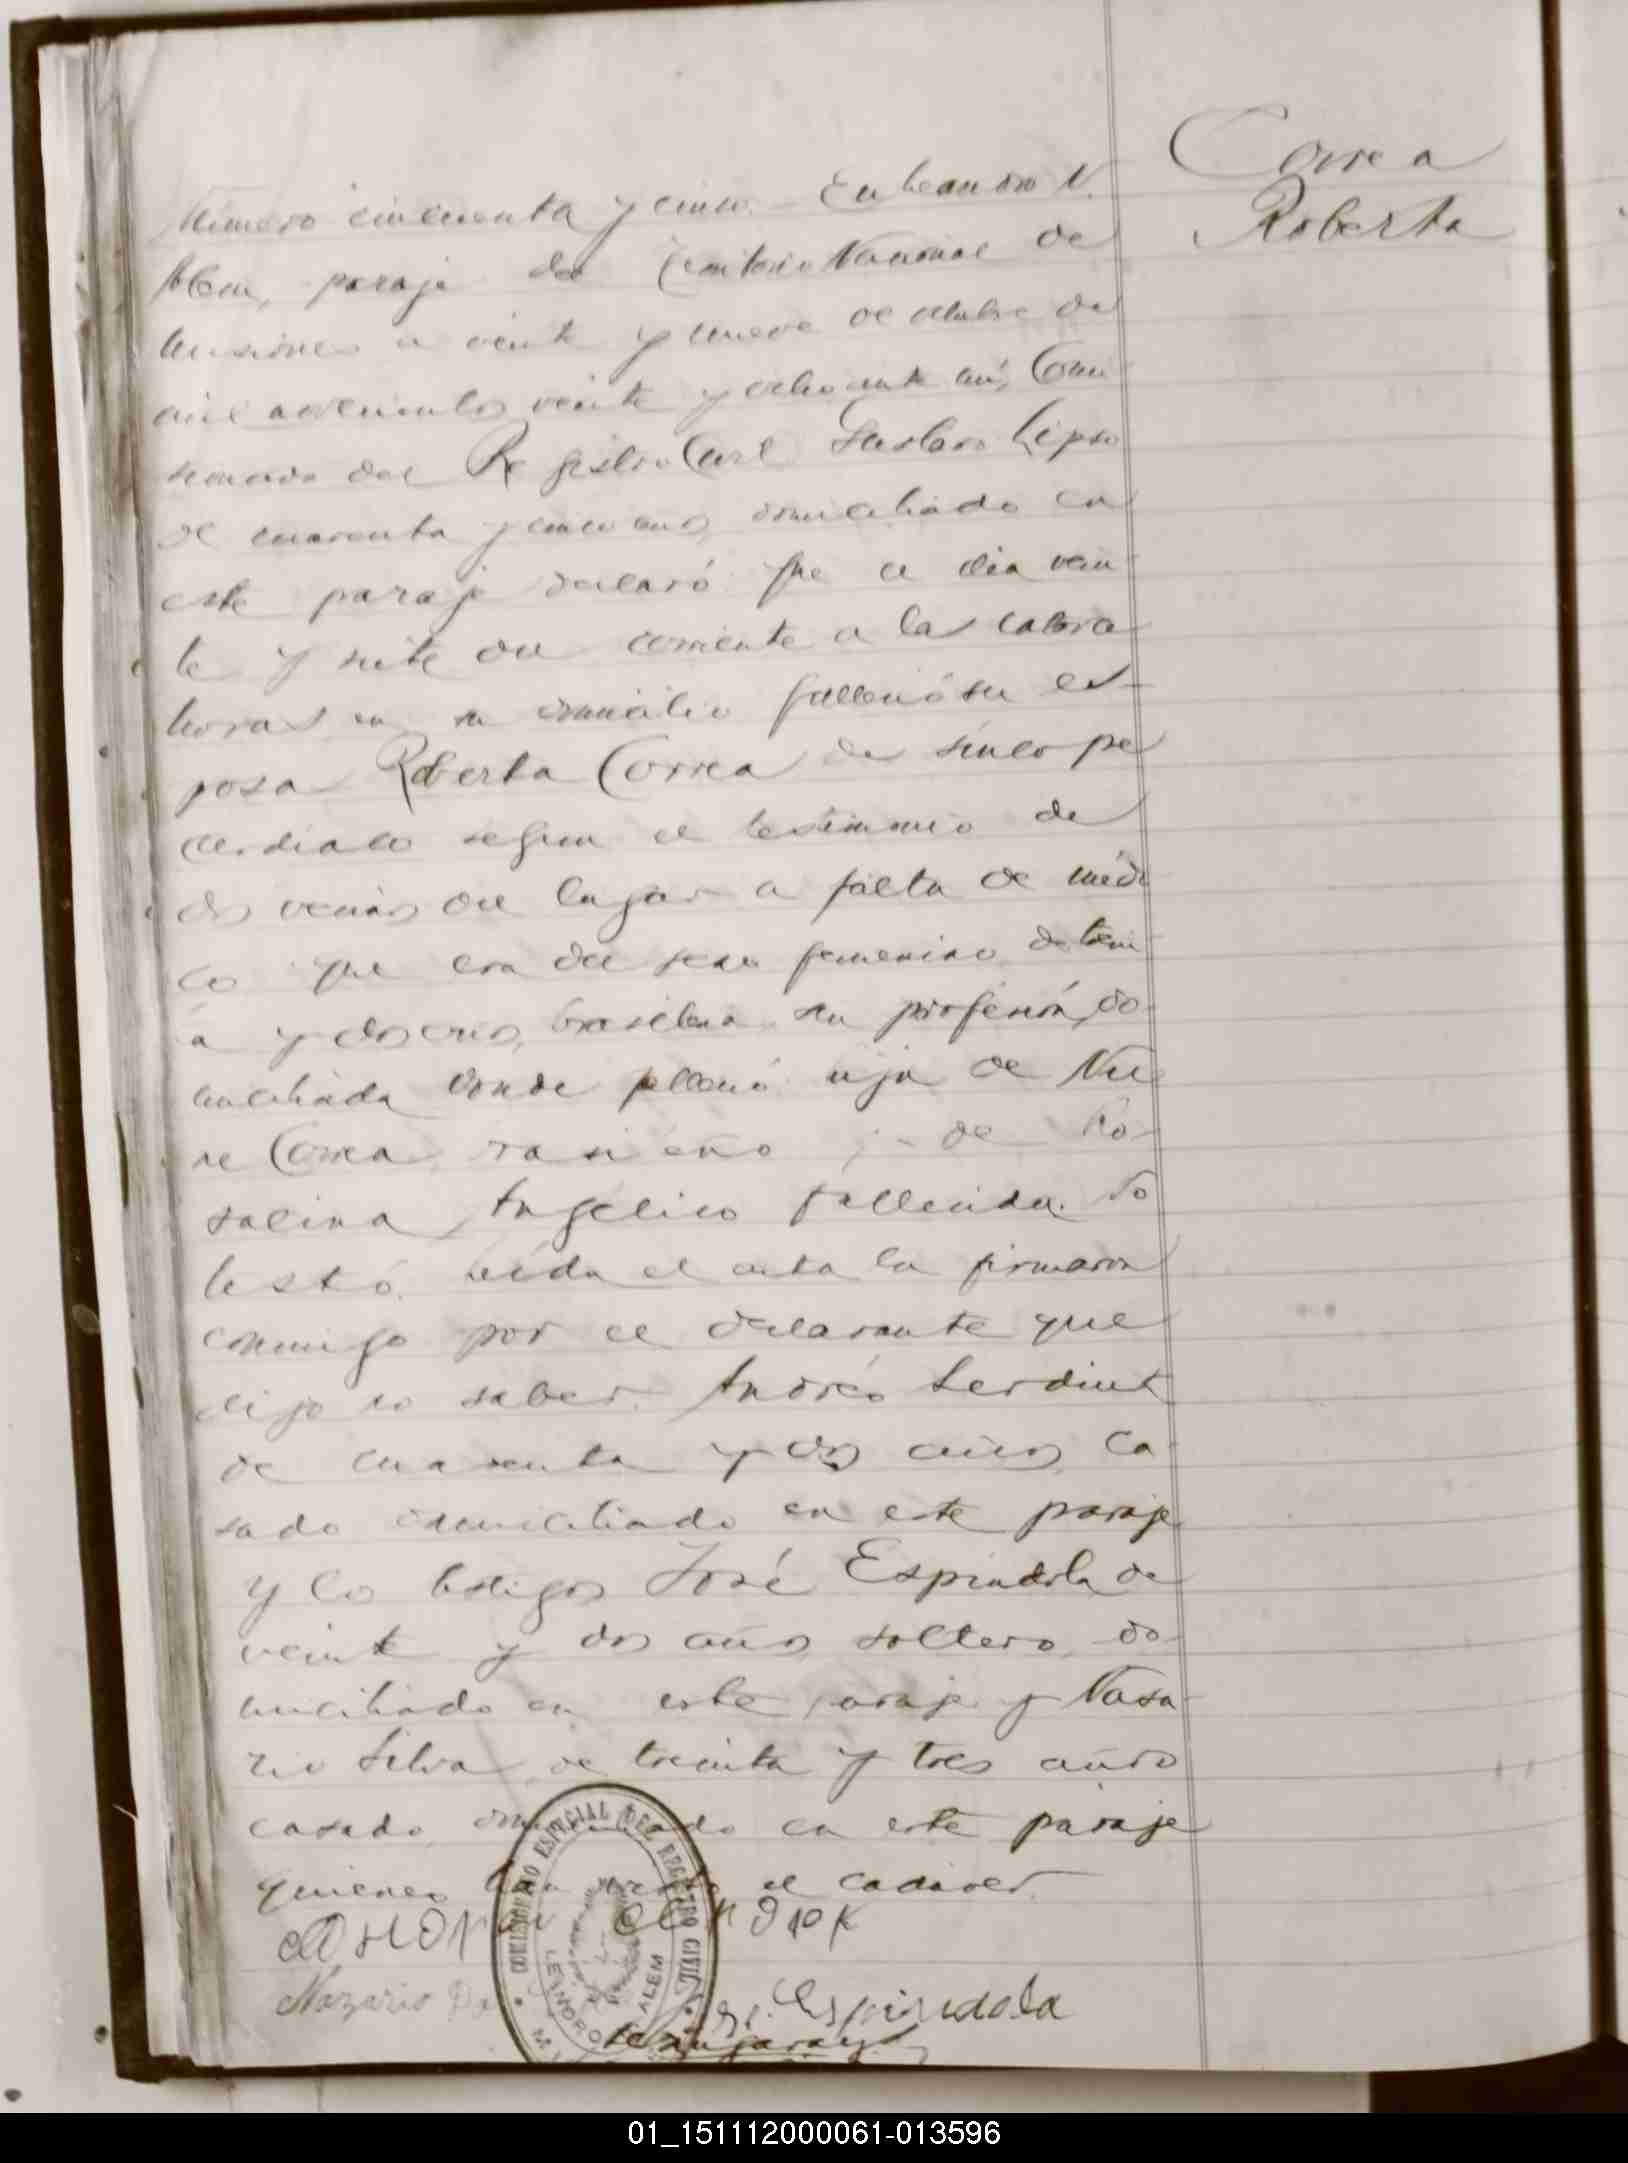 Correa
Roberta
Número cincuenta y cinco. En Leandro N.
Alem, paraje del Territorio Nacional de
Misiones a veinte y nueve de octubre de
mil novecientos veinte y ocho ante mí, Comi
sionado del Registro Civil Gustavo
de cuarenta y cinco años, domiciliado en
este paraje declaró que el dia vein
te y siete del corriente a las catorce
horas en su domicilio falleció su es-
posa Roberta Correa de síncope
cardiaco segun el testimonio de
dos vecinos del lugar a falta de médi
co que era del sexo femenino de trein
ta y dos años, brasilera su profesión, do-
miciliada donde falleció hija de
Correa, de Ro-
salina Angélico fallecida. No
testó. Leída el acta la firmaron
conmigo por el declarante que
dijo no saber. Andrés
de cuarenta y dos años ca-
sado domiciliado en este paraje
y los testigos José Espindola de
veinte y dos años, soltero, do-
miciliado en este paraje y Nasa-
rio Silva, de treinta y tres años
casado, domiciliado en este paraje
quienes el cadáver.
Nazario
Espindola
COMISIONADO ESPECIAL DEL REGISTRO CIVIL
LEANDRO N. ALEM
01_151112000061-013596